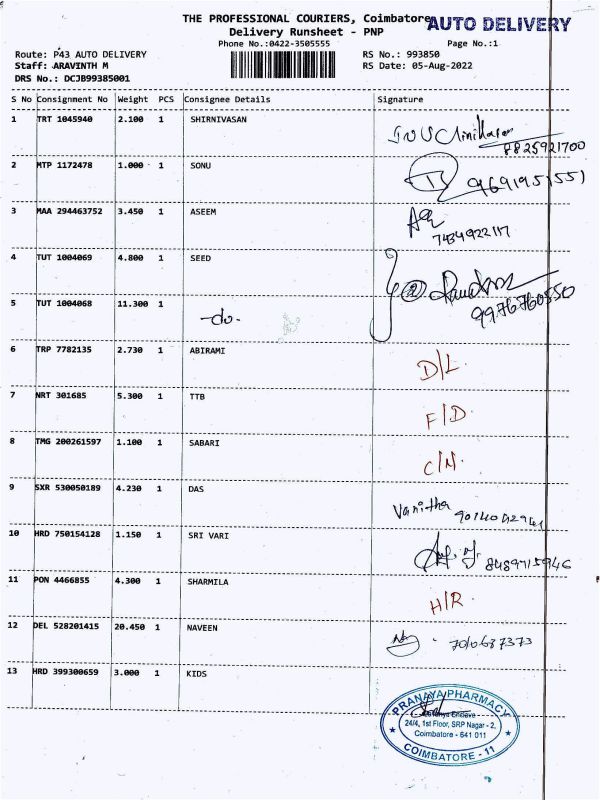 THE PROFESSIONAL COURIERS, Coimbatore
AUTO DELIVERY
Delivery Runsheet - PNP
Phone No.:0422-3505555
Page No.:1
Route: P43 AUTO DELIVERY
RS No.: 993850
Staff: ARAVINTH M
RS Date: 05-Aug-2022
DRS No.: DCJB99385001
S No Consignment No Weight PCS Consignee Details Signature
1 TRT 1045940 2.100 1 SHIRNIVASAN
8825921700
2 MTP 1172478 1.000 1 SONU
9691951551
3 MAA 294463752 3.450 1 ASEEM
4 TUT 1004069 4.800 1 SEED
9976760550
5 TUT 1004068 11.300 1 -do-
6 TRP 7782135 2.730 1 ABIRAMI D/L
7 NRT 301685 5.300 1 TTB F/D
8 TMG 200261597 1.100 1 SABARI C/N
9 SXR 530050189 4.230 1 DAS Vanitha
10 HRD 750154128 1.150 1 SRI VARI
8489715946
11 PON 4466855 4.300 1 SHARMILA H/R
12 DEL 528201415 20.450 1 NAVEEN
13 HRD 399300659 3.000 1 KIDS
PRANAYA PHARMACY
Enclave
24/4, 1st Floor, SRP Nagar - 2,
Coimbatore - 641 011
COIMBATORE - 11